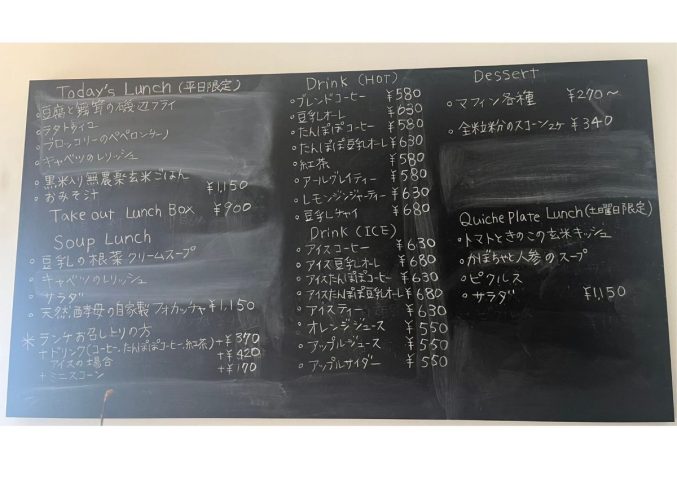 Today's Lunch (平日限定)
○豆腐と舞茸の磯辺フライ
○ラタトゥイユ
○ブロッコリーのペペロンチーノ
○キャベツのレリッシュ
○黒米入り無農薬玄米ごはん
○おみそ汁 ¥1,150
Take out Lunch Box ¥900
Soup Lunch
○豆乳の根菜クリームスープ
○キャベツのレリッシュ
○サラダ
○天然酵母の自家製フォカッチャ ¥1,150
*ランチお召し上りの方
+ドリンク(コーヒー、たんぽぽコーヒー、紅茶)+¥370
アイスの場合 +¥420
+ミニスコーン +¥170
Drink (HOT)
○ブレンドコーヒー ¥580
○豆乳オーレ ¥630
○たんぽぽコーヒー ¥580
○たんぽぽ豆乳オーレ ¥630
○紅茶 ¥580
○アールグレイティー ¥580
○レモンジンジャーティー ¥630
○豆乳チャイ ¥680
Drink (ICE)
○アイスコーヒー ¥630
○アイス豆乳オーレ ¥680
○アイスたんぽぽコーヒー ¥630
○アイスたんぽぽ豆乳オーレ ¥680
○アイスティー ¥630
○オレンジジュース ¥550
○アップルジュース ¥550
○アップルサイダー ¥550
Dessert
○マフィン各種 ¥270〜
○全粒粉のスコーン2ヶ ¥340
Quiche Plate Lunch (土曜日限定)
○トマトときのこの玄米キッシュ
○かぼちゃと人参のスープ
○ピクルス
○サラダ ¥1,150